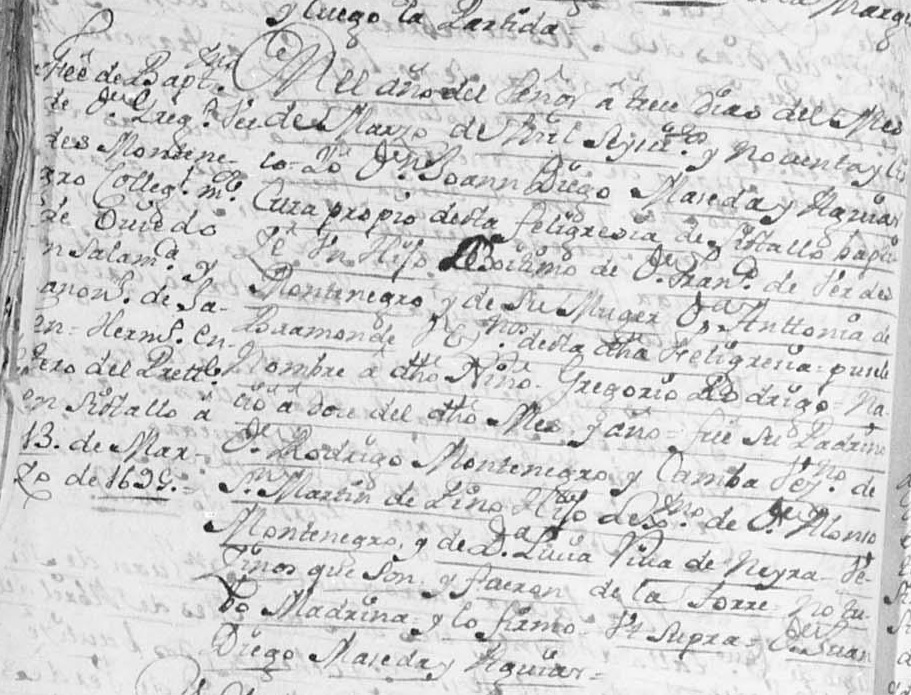 y luego la Partida =
Fee de Bapt.mo
de Dn Greg.o Ver
des Montene-
gro Colleg.l m.r
de Oviedo
n Salam.ca y
anon.o de Sa-
en = Herm.o en-
tero del Prett.e
en Sistallo à
13. de Mar-
zo de 1695. =
EN el año del Señor a trece Dias del Mes
de Marzo de Mil Seysci.tos y Noventa y Cin
co = Yo Dn Joann Diego Maseda y Aguiar
Cura propio desta feligresia de Sistallo bapti
zè Vn Hijo Lexitimo de Dn Fran.co de Verdes
Montenegro y de su Muger Da Anttonia de
Baamonde Vez.nos desta dha Feligresia = puse
Nombre a dho Niño = Gregorio Rodrigo = Na-
ciò a doce del dho Mes y año = fue su Padrino
Dn Rodrigo Montenegro y Camba Vez.no de
Sn Martin de Lino Hijo de Dn Alonso
Montenegro, y de Da Lucia de Neyra = Ve-
zinos que son, y fueron de la Torre = No tu-
bo Madrina = y lo firmo = Vt Supra = Dn Juan
Diego Maseda y Aguiar =